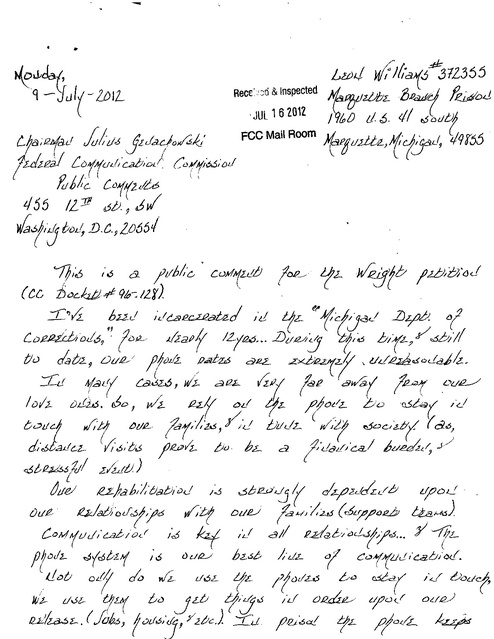 Monday,
9-July-2012
Received & Inspected
JUL 16 2012
FCC Mail Room
Leon Williams #372355
Marquette Branch Prison
1960 U.S. 41 South
Marquette, Michigan, 49855
Chairman Julius Genachowski
Federal Communication Commission
Public Comments
455 12TH St., SW
Washington, D.C., 20554
This is a public comment for the Wright petition
(CC Docket # 96-128).
I've been incarcerated in the "Michigan Dept. of
Corrections," for nearly 12yrs... During this time, & still
to date, our phone rates are extremely unreasonable.
In many cases, we are very far away from our
love ones. So, we rely on the phone to stay in
touch with our families, & in tune with society (as,
distance visits prove to be a finanical burden, &
stressful event.)
Our rehabilitation is strongly dependent upon
our relationships with our families (support teams).
Communication is key in all relationships... & The
phone system is our best line of communication.
Not only do we use the phones to stay in touch,
we use them to get things in order upon our
release. (Jobs, housing, & etc.). In prison the phone keeps